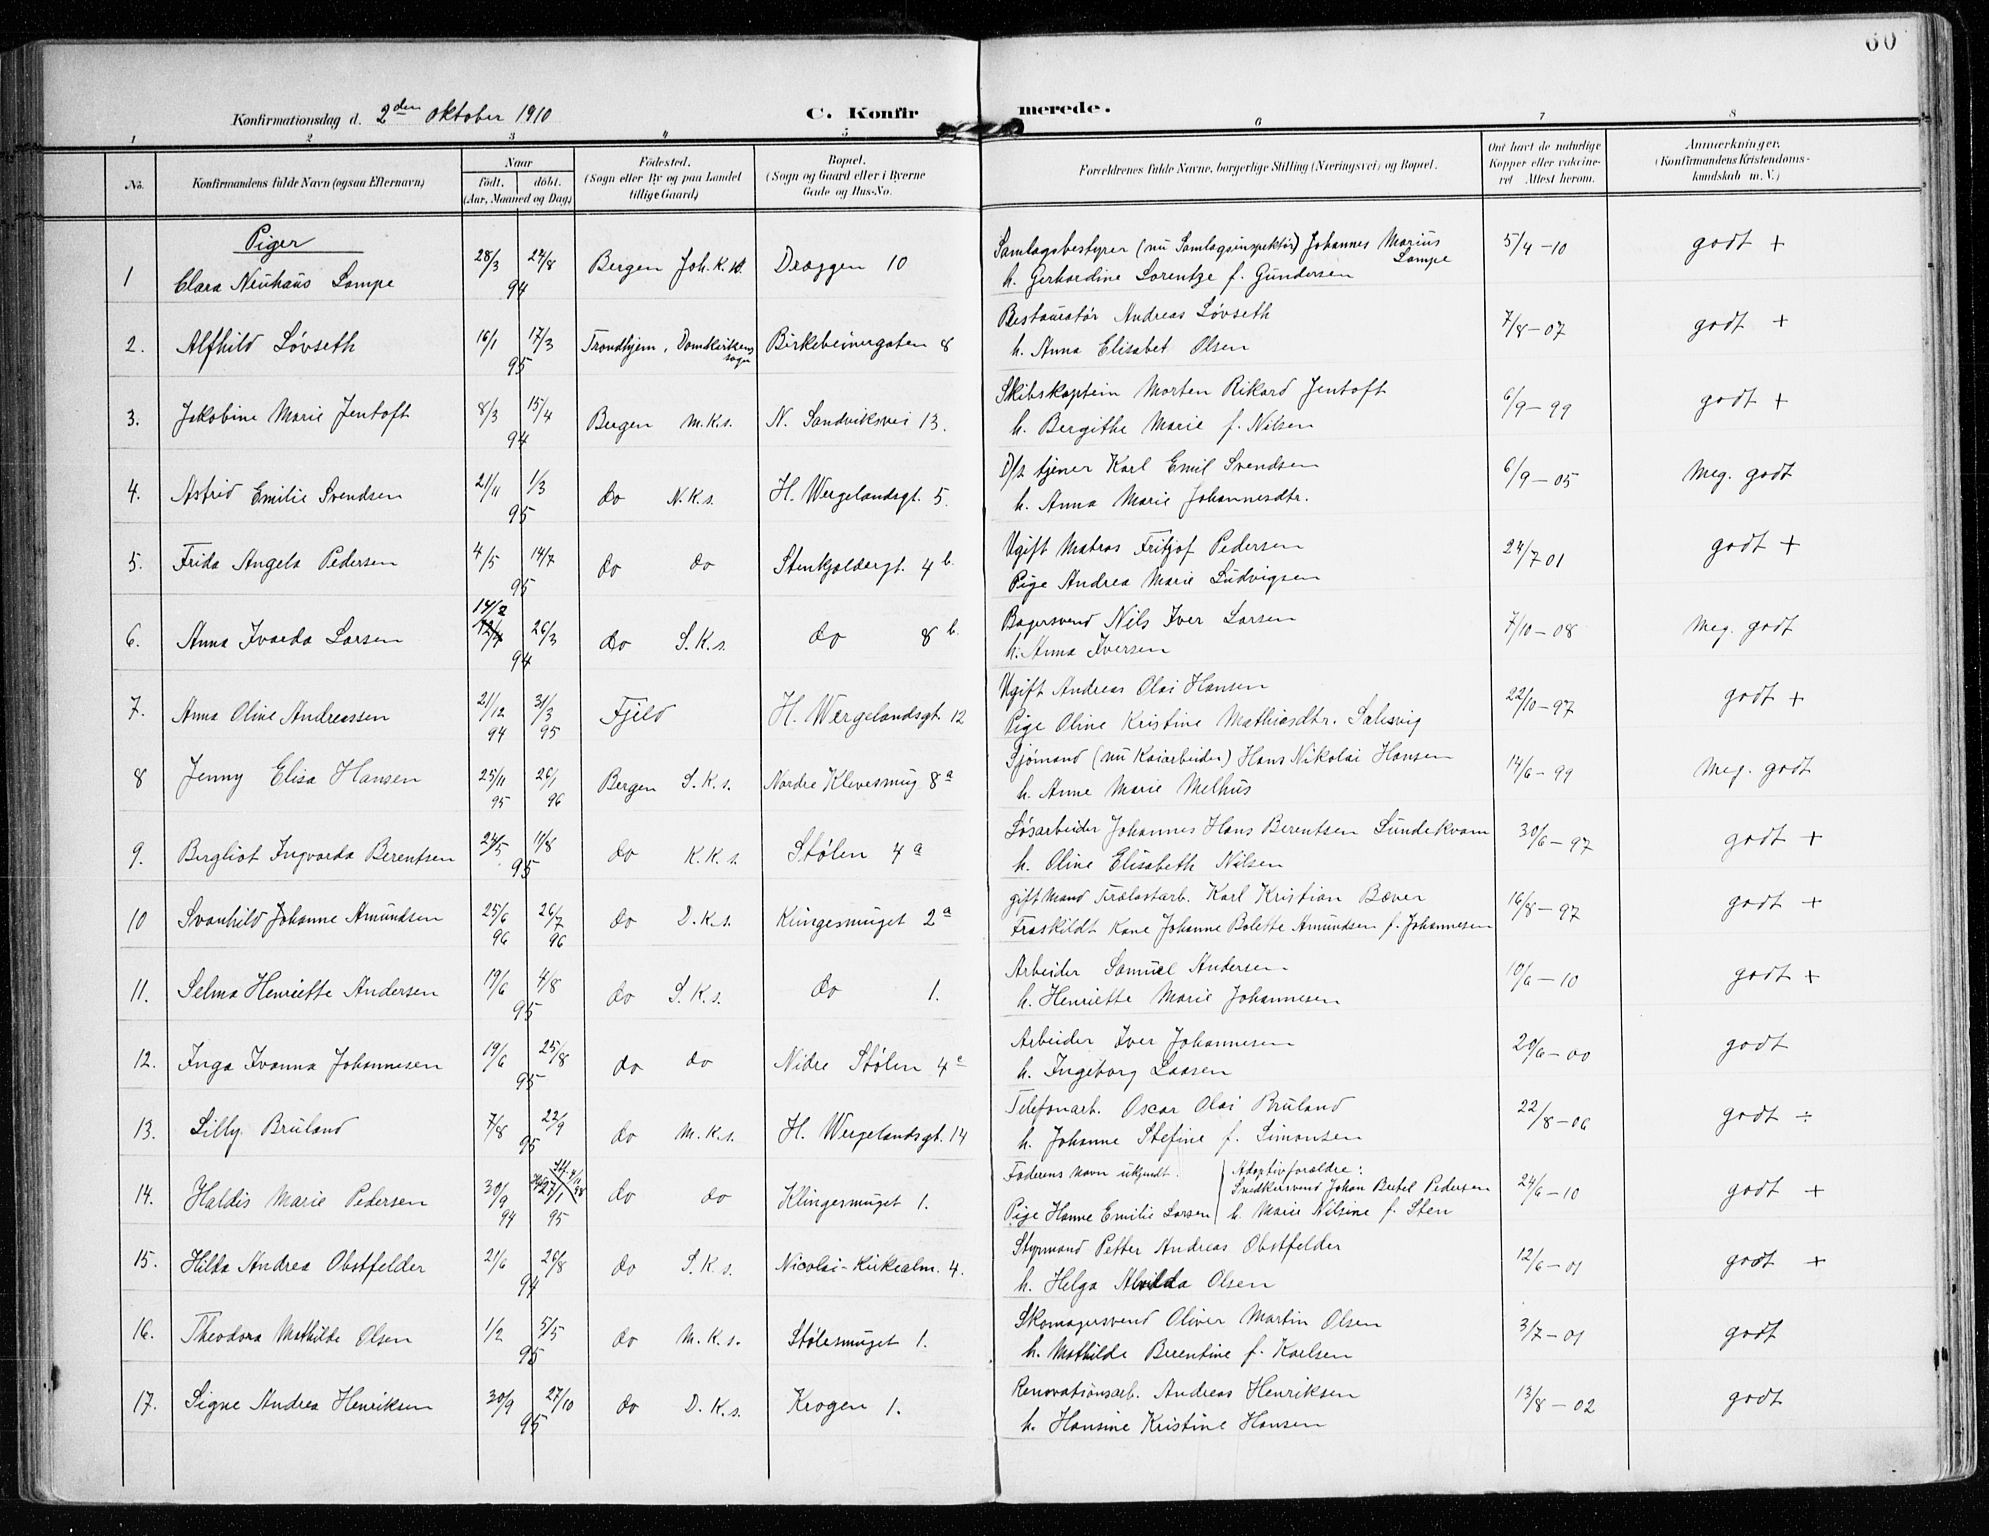 60
Konfirmationsdag d. 2den oktober 1910 C. Konfirmerede.
1 2 3 4 5 6 7 8
No. Konfirmandens fulde Navn (ogsaa Efternavn) Naar födt. döbt. (Aar, Maaned og Dag) Födested. (Sogn eller By og paa Landet tillige Gaard) Bopæl. (Sogn og Gaard eller i Byerne Gade og Hus-No. Forældrenes fulde Navne, borgerlige Stilling (Næringsvei) og Bopæl. Om havt de naturlige Kopper eller vaksineret. Attest herom. Anmærkninger. (Konfirmandens Kristendomskundskab m. V.)
Piger
1 Clara Neuhaus Lampe 28/3 24/8 94 Bergen Joh. K. s. Dreggen 10 Samlagsbestyrer (nu Samlagsinspektør) Johannes Marius Lampe 5/4-10 godt +
h. Gerhardine Lorentze f. Gundersen
2. Alfhild Løvseth 16/1 17/3 95 Trondhjem, Domkirkens sogn Birkebeinergaten 8 Restauratør Andreas Løvseth 7/8-07 godt +
h. Anna Elisabet Olsen
3. Jakobine Marie Jentoft 8/3 15/4 94 Bergen M.K.s. N. Sandviksvei 13. Skibskaptein Morten Rikard Jentoft 6/9-99 godt +
h. Bergithe Marie f. Nilsen
4. Astrid Emilie Svendsen 21/11 1/3 95 do N.K.s. H. Wergelandsgt. 5. D/s tjener Karl Emil Svendsen 6/9-05 Meg. godt
h. Anna Marie Johannesdtr.
5. Frida Angela Pedersen 4/5 14/7 95 do do Stenkjeldergt. 4 b. Ugift Matros Fritjof Pedersen 24/7 01 godt +
Pige Andrea Marie Ludvigsen
6. Anna Ivarda Larsen 14/2 26/3 94 do S.K.s. do 8 b. Bagersvend Nils Iver Larsen 7/10-08 Meg. godt
h. Anna Iversen
7. Anna Oline Andreassen 21/12 94 31/3 95 Fjeld H. Wergelandsgt. 12 Ugift Andreas Olai Hansen 22/10-97 godt +
Pige Oline Kristine Mathiasdtr. Salesvig
8 Jenny Elisa Hansen 25/11 95 26/1 96 Bergen S.K.s. Nordre Klevesmug 8 a Sjømand (nu Kaiarbeider) Hans Nikolai Hansen 14/6-99 Meg. godt
h. Anne Marie Melhus
9. Bergliot Ingvarda Berentsen 24/5 11/8 95 do K.K.s. Stølen 4 a Løsarbeider Johannes Hans Berentsen Lundekvam 30/6-97 godt +
h. Oline Elisabeth Nilsen
10 Svanhild Johanne Amundsen 25/6 96 26/7 96 do D.K.s. Klingesmuget 2 a gift Mand Trælastarb. Karl Kristian Bæver 16/8-97 godt +
Fraskildt Kone Johanne Bolette Amundsen f. Johannesen
11. Selma Henriette Andersen 19/6 4/8 95 do S.K.s. do 1. Arbeider Samuel Andersen 10/6-10 godt +
h. Henriette Marie Johannesen
12. Inga Ivanna Johannesen 19/6 25/8 95 do do Nidre Stølen 4 c Arbeider Iver Johannesen 20/6-00 godt
h. Ingeborg Laasen
13. Lilly Bruland 7/8 22/9 95 do M.K.s. H. Wergelandsgt. 14 Telefonarb. Oscar Olai Bruland 22/8-06 godt ÷
h. Johanne Stefine f. Simonsen
14. Haldis Marie Pedersen 30/9 94 27/1 95 do do Klingesmuget 1. Faderens navn ukjendt. Adoptivforældre: 24/6-10 godt +
Snedkersvend Johan Bertel Pedersen
Pige Hanne Emilie Larsen h. Marie Nilsine f. Sten
15. Hilda Andrea Obstfelder 21/6 26/8 94 do S.K.s. Nicolai-Kirkealm. 4. Styrmand Petter Andreas Obstfelder 12/6-01 godt +
h. Helga Alvilda Olsen
16. Theodora Mathilde Olsen 1/2 5/5 95 do M.K.s. Stølesmuget 1. Skomagersvend Oliver Martin Olsen 3/7-01 godt
h. Mathilde Berentine f. Karlsen
17. Signe Andrea Henriksen 30/9 27/10 95 do D.K.s. Krogen 1. Renovationsarb. Andreas Henriksen 13/8-02 godt
h. Hansine Kristine Hansen